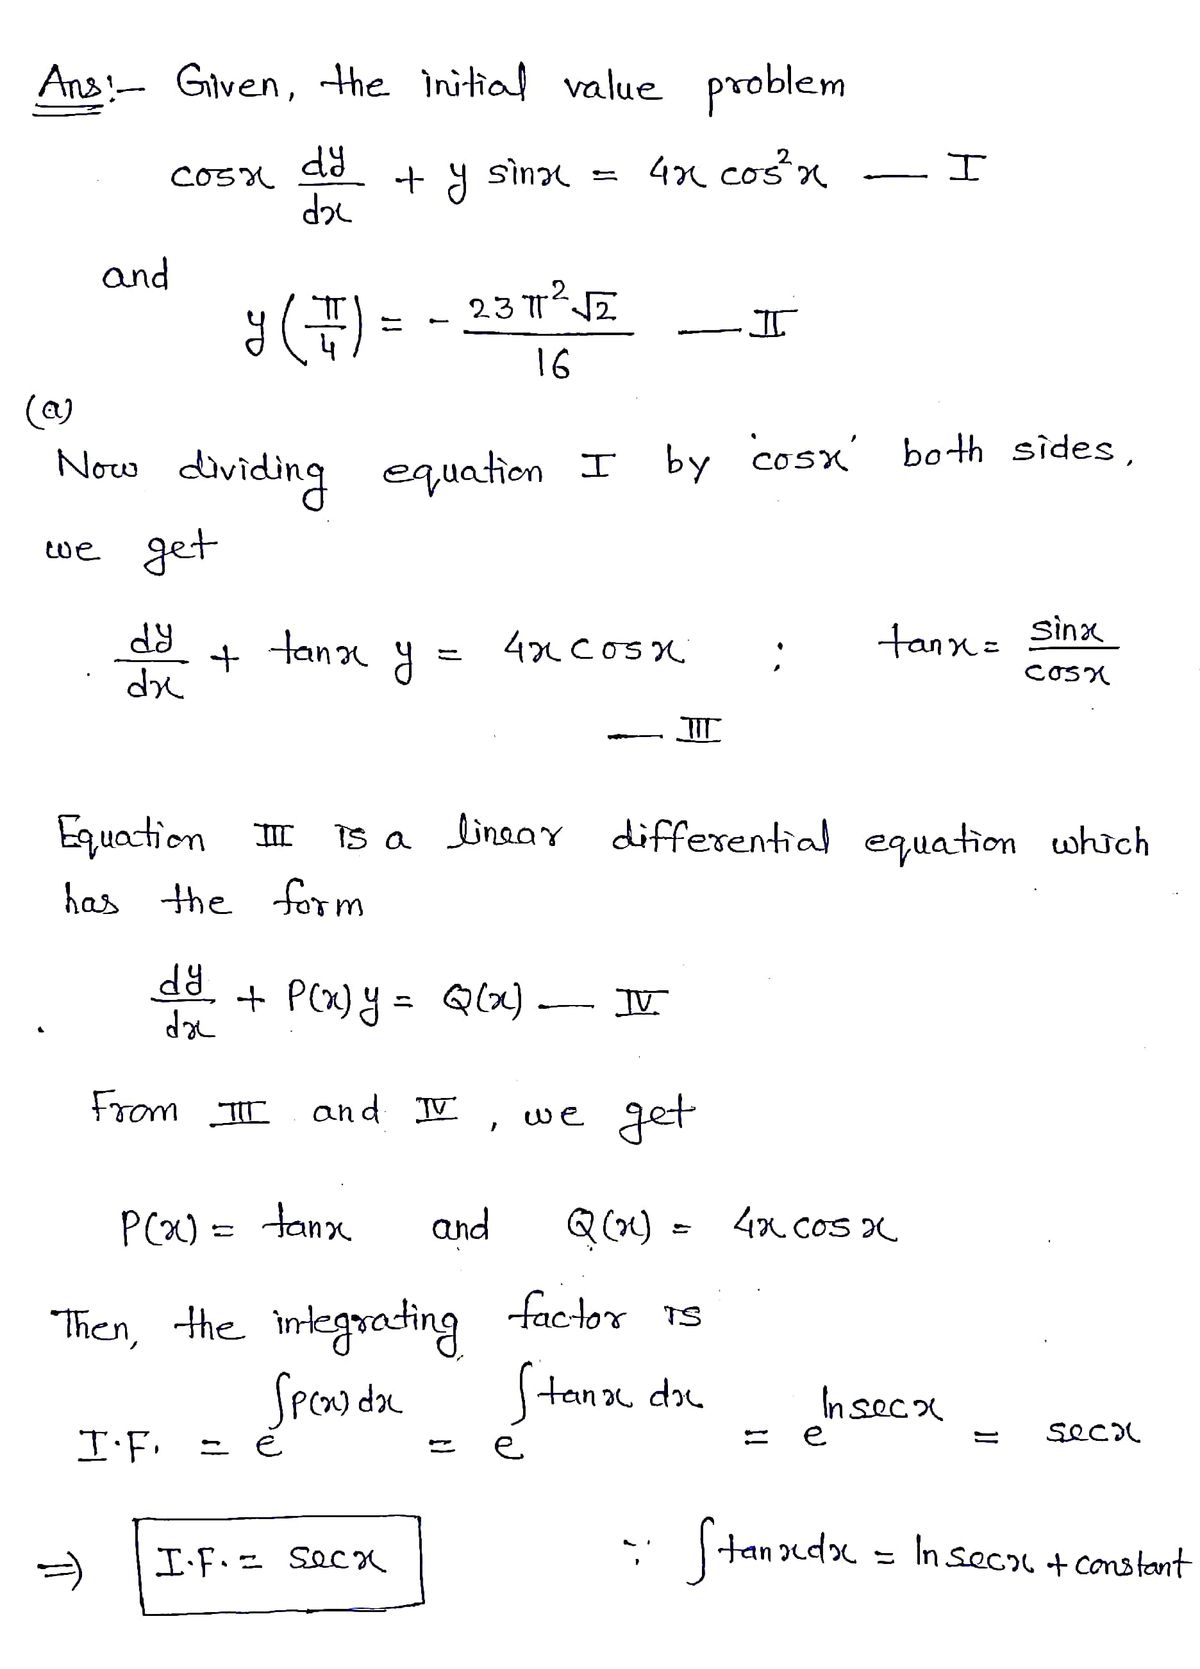 Ans:- Given, the initial value problem
cosx dy/dx + y sinx = 4x cos²x — I
and
y(π/4) = - 23π²√2/16 — II
(a)
Now dividing equation I by 'cosx' both sides,
we get
dy/dx + tanx y = 4x cosx ; tanx = sinx/cosx
— III
Equation III is a linear differential equation which
has the form
dy/dx + P(x) y = Q(x) — IV
From III and IV, we get
P(x) = tanx and Q(x) = 4x cosx
Then, the integrating factor is
I.F. = e^∫P(x) dx = e^∫tanx dx = e^ln secx = secx
⇒ I.F. = secx ∵ ∫tanxdx = ln secx + constant